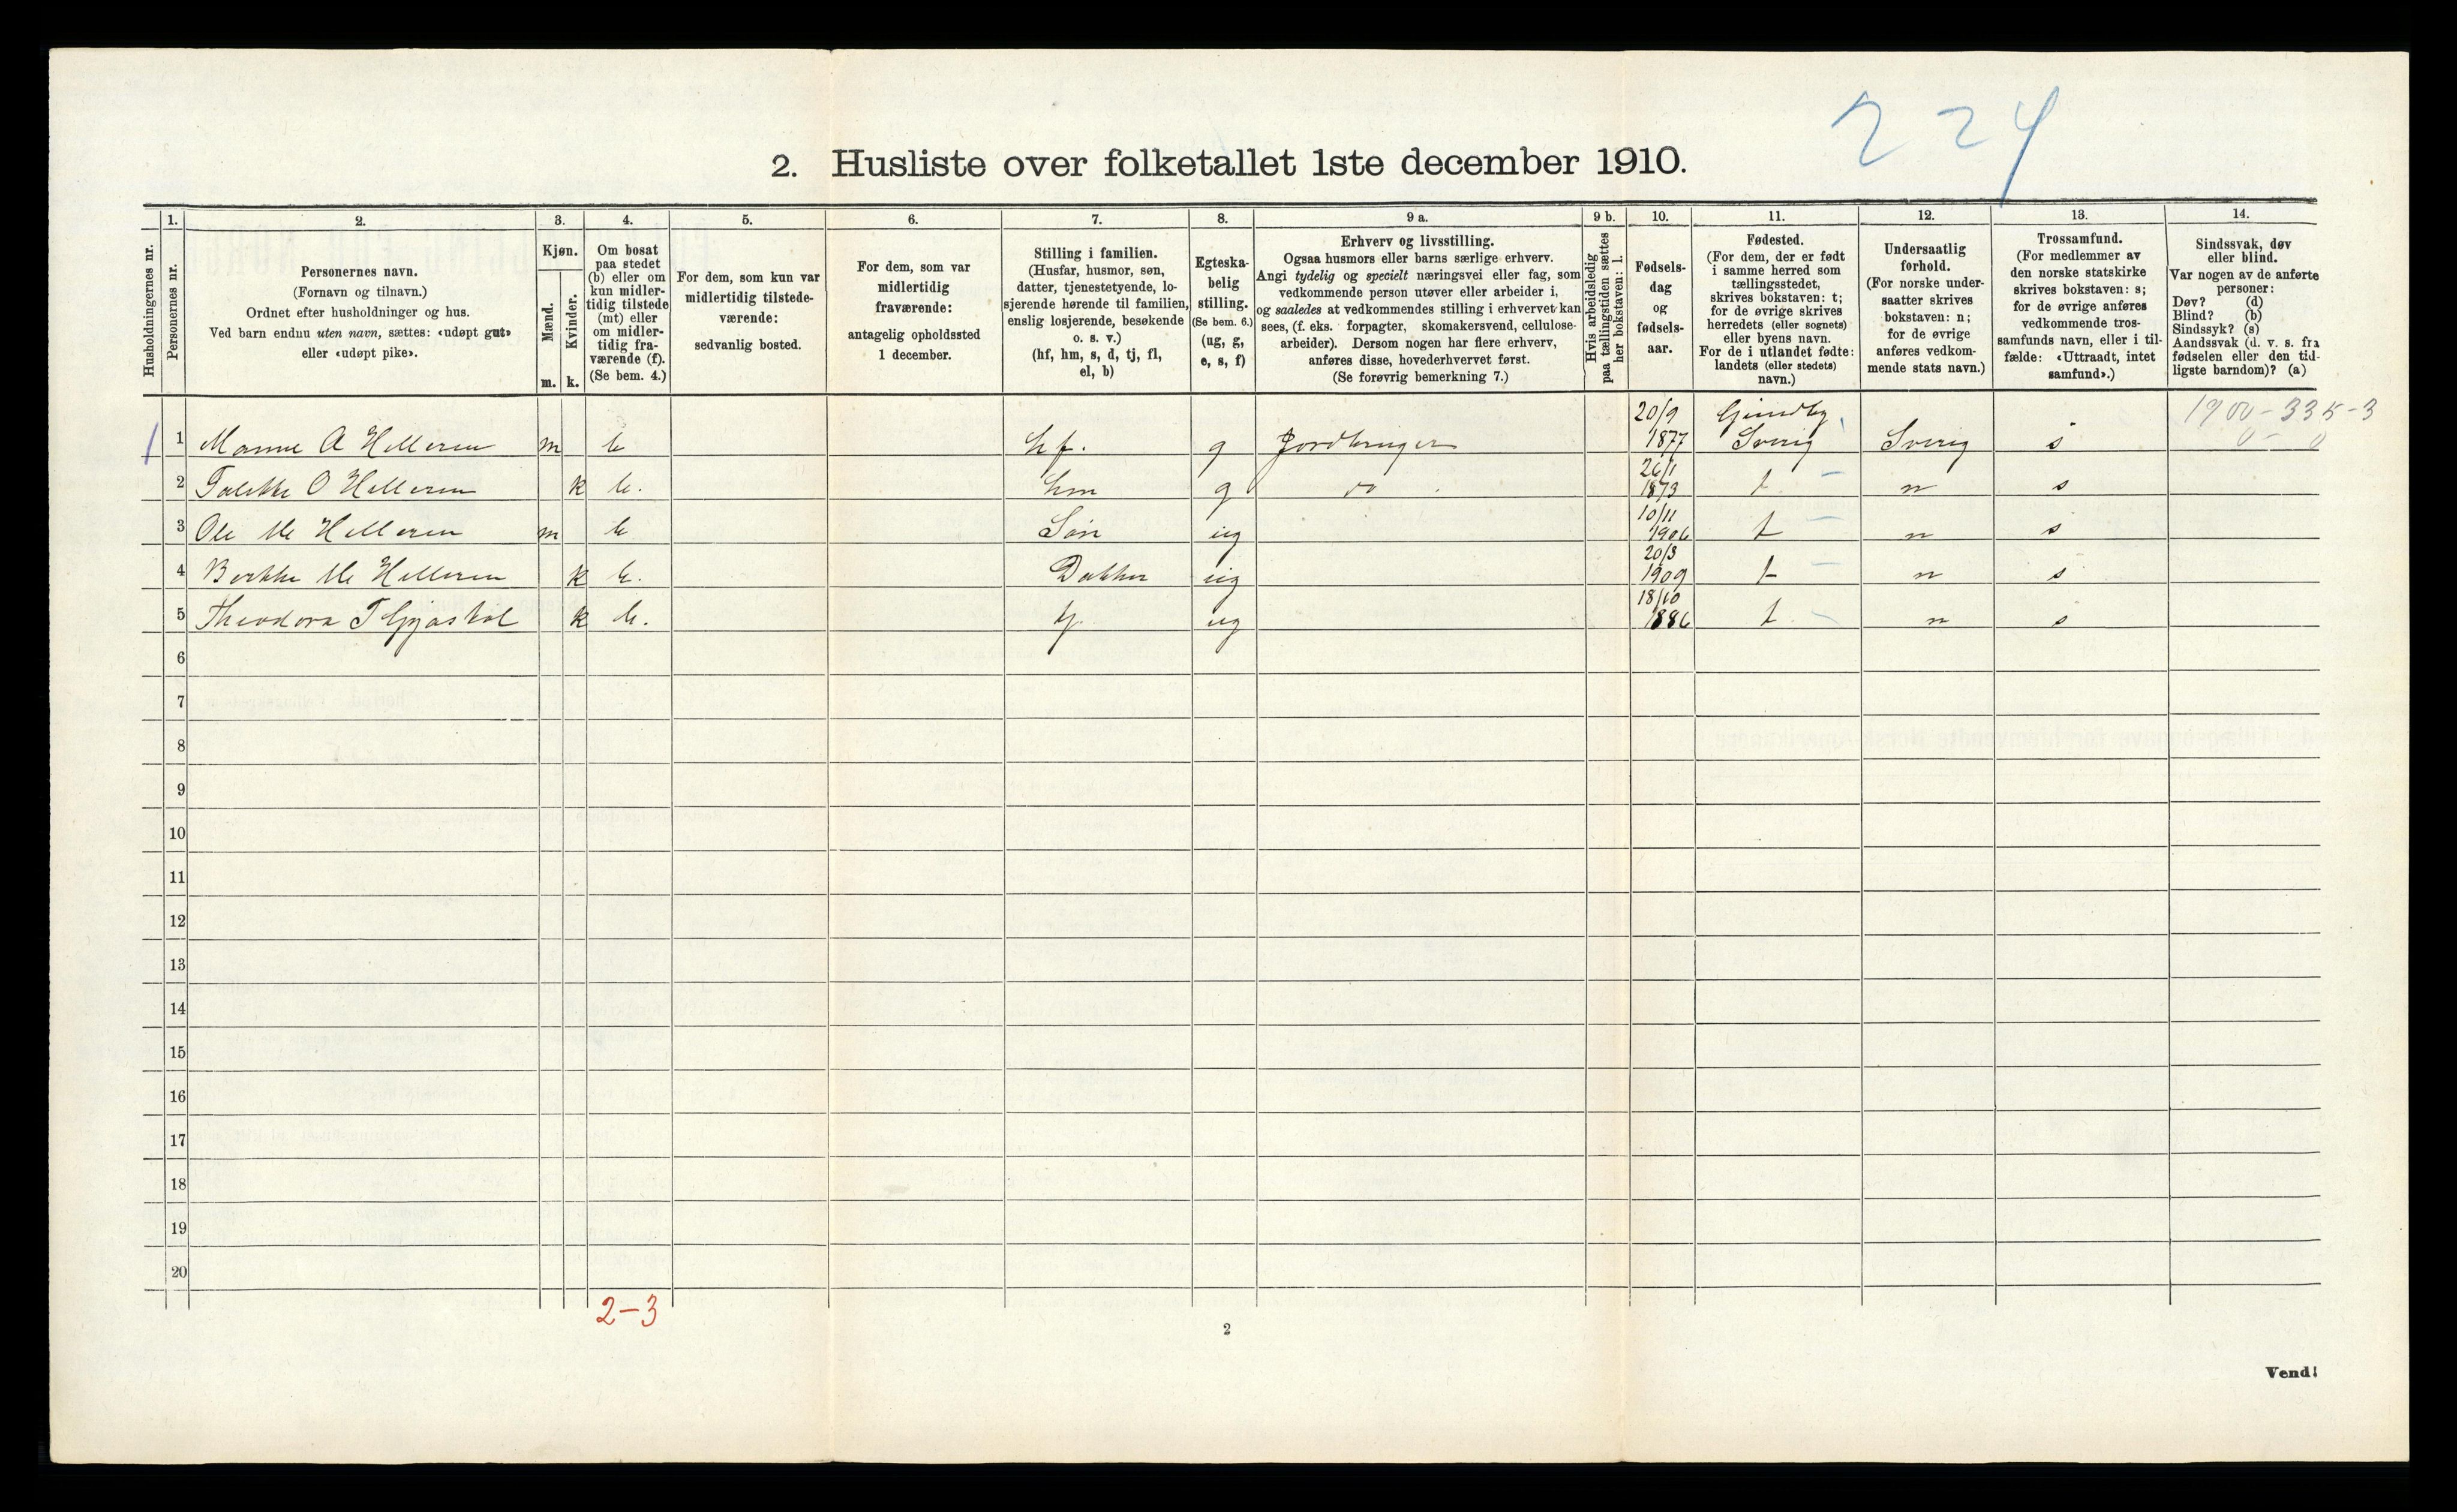 224
2. Husliste over folketallet 1ste december 1910.
Husholdningernes nr.
1. Personernes nr.
2. Personernes navn. (Fornavn og tilnavn.) Ordnet efter husholdninger og hus. Ved barn endnu uten navn, sættes: «udøpt gut» eller «udøpt pike».
3. Kjøn. Mænd. m. Kvinder. k.
4. Om bosat paa stedet (b) eller om kun midlertidig tilstede (mt) eller om midlertidig fraværende (f). (Se bem. 4.)
5. For dem, som kun var midlertidig tilstedeværende: sedvanlig bosted.
6. For dem, som var midlertidig fraværende: antagelig opholdssted 1 december.
7. Stilling i familien. (Husfar, husmor, søn, datter, tjenestetyende, losjerende hørende til familien, enslig losjerende, besøkende o. s. v.) (hf, hm, s, d, tj, fl, el, b)
8. Egteskabelig stilling. (Se bem. 6.) (ug, g, e, s, f)
9 a. Erhverv og livsstilling. Ogsaa husmors eller barns særlige erhverv. Angi tydelig og specielt næringsvei eller fag, som vedkommende person utøver eller arbeider i, og saaledes at vedkommendes stilling i erhvervet kan sees, (f. eks. forpagter, skomakersvend, cellulosearbeider). Dersom nogen har flere erhverv, anføres disse, hovederhvervet først. (Se forøvrig bemerkning 7.)
9 b. Hvis arbeidsledig paa tællingstiden sættes her bokstaven: l.
10. Fødselsdag og fødselsaar.
11. Fødested. (For dem, der er født i samme herred som tællingsstedet, skrives bokstaven: t; for de øvrige skrives herredets (eller sognets) eller byens navn. For de i utlandet fødte: landets (eller stedets) navn.)
12. Undersaatlig forhold. (For norske undersaatter skrives bokstaven: n; for de øvrige anføres vedkommende stats navn.)
13. Trossamfund. (For medlemmer av den norske statskirke skrives bokstaven: s; for de øvrige anføres vedkommende trossamfunds navn, eller i tilfælde: «Uttraadt, intet samfund».)
14. Sindssvak, døv eller blind. Var nogen av de anførte personer: Døv? (d) Blind? (b) Sindssyk? (s) Aandssvak (d. v. s. fra fødselen eller den tidligste barndom)? (a)
1900-335-3
1 1 A Helleren m b hf. g Jordbruger 20/9 1877 Sverig Sverig s
2 O Helleren k b. hm g do 26/1 1873 t n s
3 Ole M Helleren m b Søn ug 10/11 1906 t n s
4 M Helleren k b. Datter ug 20/3 1909 t n s
5 Theodora T k b. tj ug 18/10 1886 t n s
6
7
8
9
10
11
12
13
14
15
16
17
18
19
20
2-3
2
Vend!